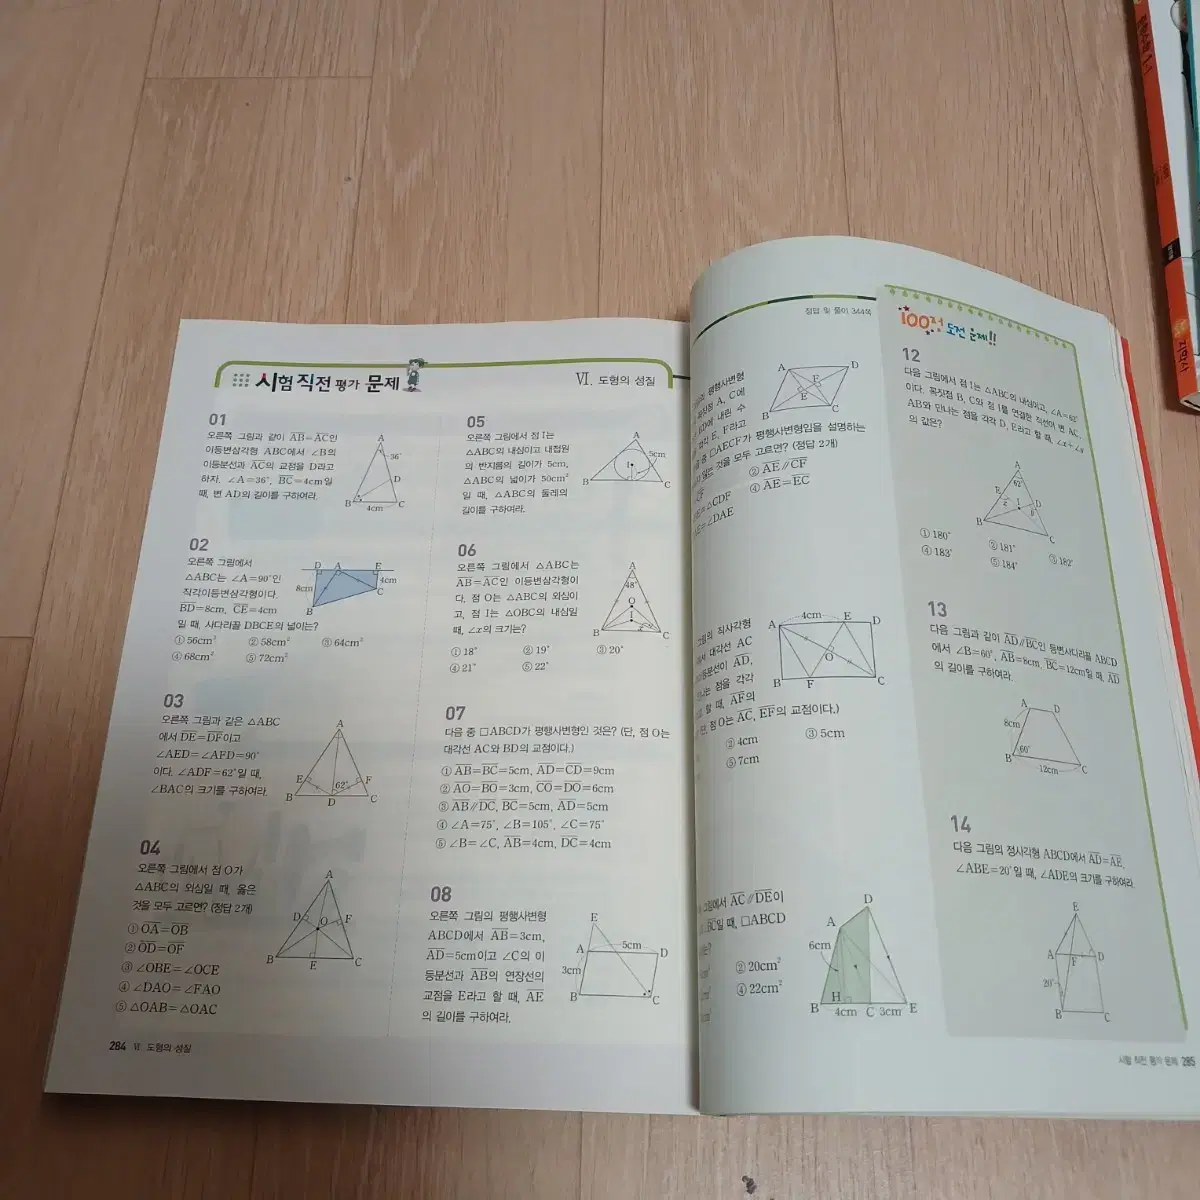 시험 직전 평가 문제
Ⅵ. 도형의 성질
01
오른쪽 그림과 같이 AB=AC인
이등변삼각형 ABC에서 ∠B의
이등분선과 AC의 교점을 D라고
하자. ∠A=36°, BC=4cm일
때, 변 AD의 길이를 구하여라.
A
36°
D
B
4cm
C
02
오른쪽 그림에서
△ABC는 ∠A=90°인
직각이등변삼각형이다.
BD=8cm, CE=4cm
일 때, 사다리꼴 DBCE의 넓이는?
D A E
8cm
4cm
C
B
① 56cm² ② 58cm² ③ 64cm²
④ 68cm² ⑤ 72cm²
03
오른쪽 그림과 같은 △ABC
에서 DE=DF이고
∠AED=∠AFD=90°
이다. ∠ADF=62°일 때,
∠BAC의 크기를 구하여라.
A
E
62°
F
B D C
04
오른쪽 그림에서 점 O가
△ABC의 외심일 때, 옳은
것을 모두 고르면? (정답 2개)
① OA=OB
② OD=OF
③ ∠OBE=∠OCE
④ ∠DAO=∠FAO
⑤ △OAB=△OAC
A
D O F
B E C
284 Ⅵ 도형의 성질
05
오른쪽 그림에서 점 I는
△ABC의 내심이고 내접원
의 반지름의 길이가 5cm,
△ABC의 넓이가 50cm²
일 때, △ABC의 둘레의
길이를 구하여라.
A
5cm
I
B C
06
오른쪽 그림에서 △ABC는
AB=AC인 이등변삼각형이
다. 점 O는 △ABC의 외심이
고, 점 I는 △OBC의 내심일
때, ∠x의 크기는?
A
48°
O
I
x
B C
① 18° ② 19° ③ 20°
④ 21° ⑤ 22°
07
다음 중 □ABCD가 평행사변형인 것은? (단, 점 O는
대각선 AC와 BD의 교점이다.)
① AB=BC=5cm, AD=CD=9cm
② AO=BO=3cm, CO=DO=6cm
③ AB∥DC, BC=5cm, AD=5cm
④ ∠A=75°, ∠B=105°, ∠C=75°
⑤ ∠B=∠C, AB=4cm, DC=4cm
08
오른쪽 그림의 평행사변형
ABCD에서 AB=3cm,
AD=5cm이고 ∠C의 이
등분선과 AB의 연장선의
교점을 E라고 할 때, AE
의 길이를 구하여라.
E
A 5cm D
3cm
B C
정답 및 풀이 344쪽
평행사변형
꼭짓점 A, C에
BD에 내린 수
각각 E, F라고
중 □AECF가 평행사변형임을 설명하는
않는 것을 모두 고르면? (정답 2개)
② AE∥CF
④ AE=EC
≡△CDF
=∠DAE
A D
F
E
B C
의 직사각형
에서 대각선 AC
등분선이 AD,
나는 점을 각각
할 때, AF의
단, 점 O는 AC, EF의 교점이다.)
② 4cm ③ 5cm
⑤ 7cm
4cm
A E D
O
B F C
그림에서 AC∥DE이
BC일 때, □ABCD
② 20cm²
④ 22cm²
D
A
6cm
H
B 4cm C 3cm E
100점 도전 문제!!
12
다음 그림에서 점 I는 △ABC의 내심이고, ∠A=62°
이다. 꼭짓점 B, C와 점 I를 연결한 직선이 변 AC,
AB와 만나는 점을 각각 D, E라고 할 때, ∠x+∠y
의 값은?
A
62°
E
I
D
B
C
① 180° ② 181° ③ 182°
④ 183° ⑤ 184°
13
다음 그림과 같이 AD∥BC인 등변사다리꼴 ABCD
에서 ∠B=60°, AB=8cm, BC=12cm일 때, AD
의 길이를 구하여라.
A D
8cm
60°
B 12cm C
14
다음 그림의 정사각형 ABCD에서 AD=AE,
∠ABE=20°일 때, ∠ADE의 크기를 구하여라.
E
A F D
20°
B C
시험 직전 평가 문제 285